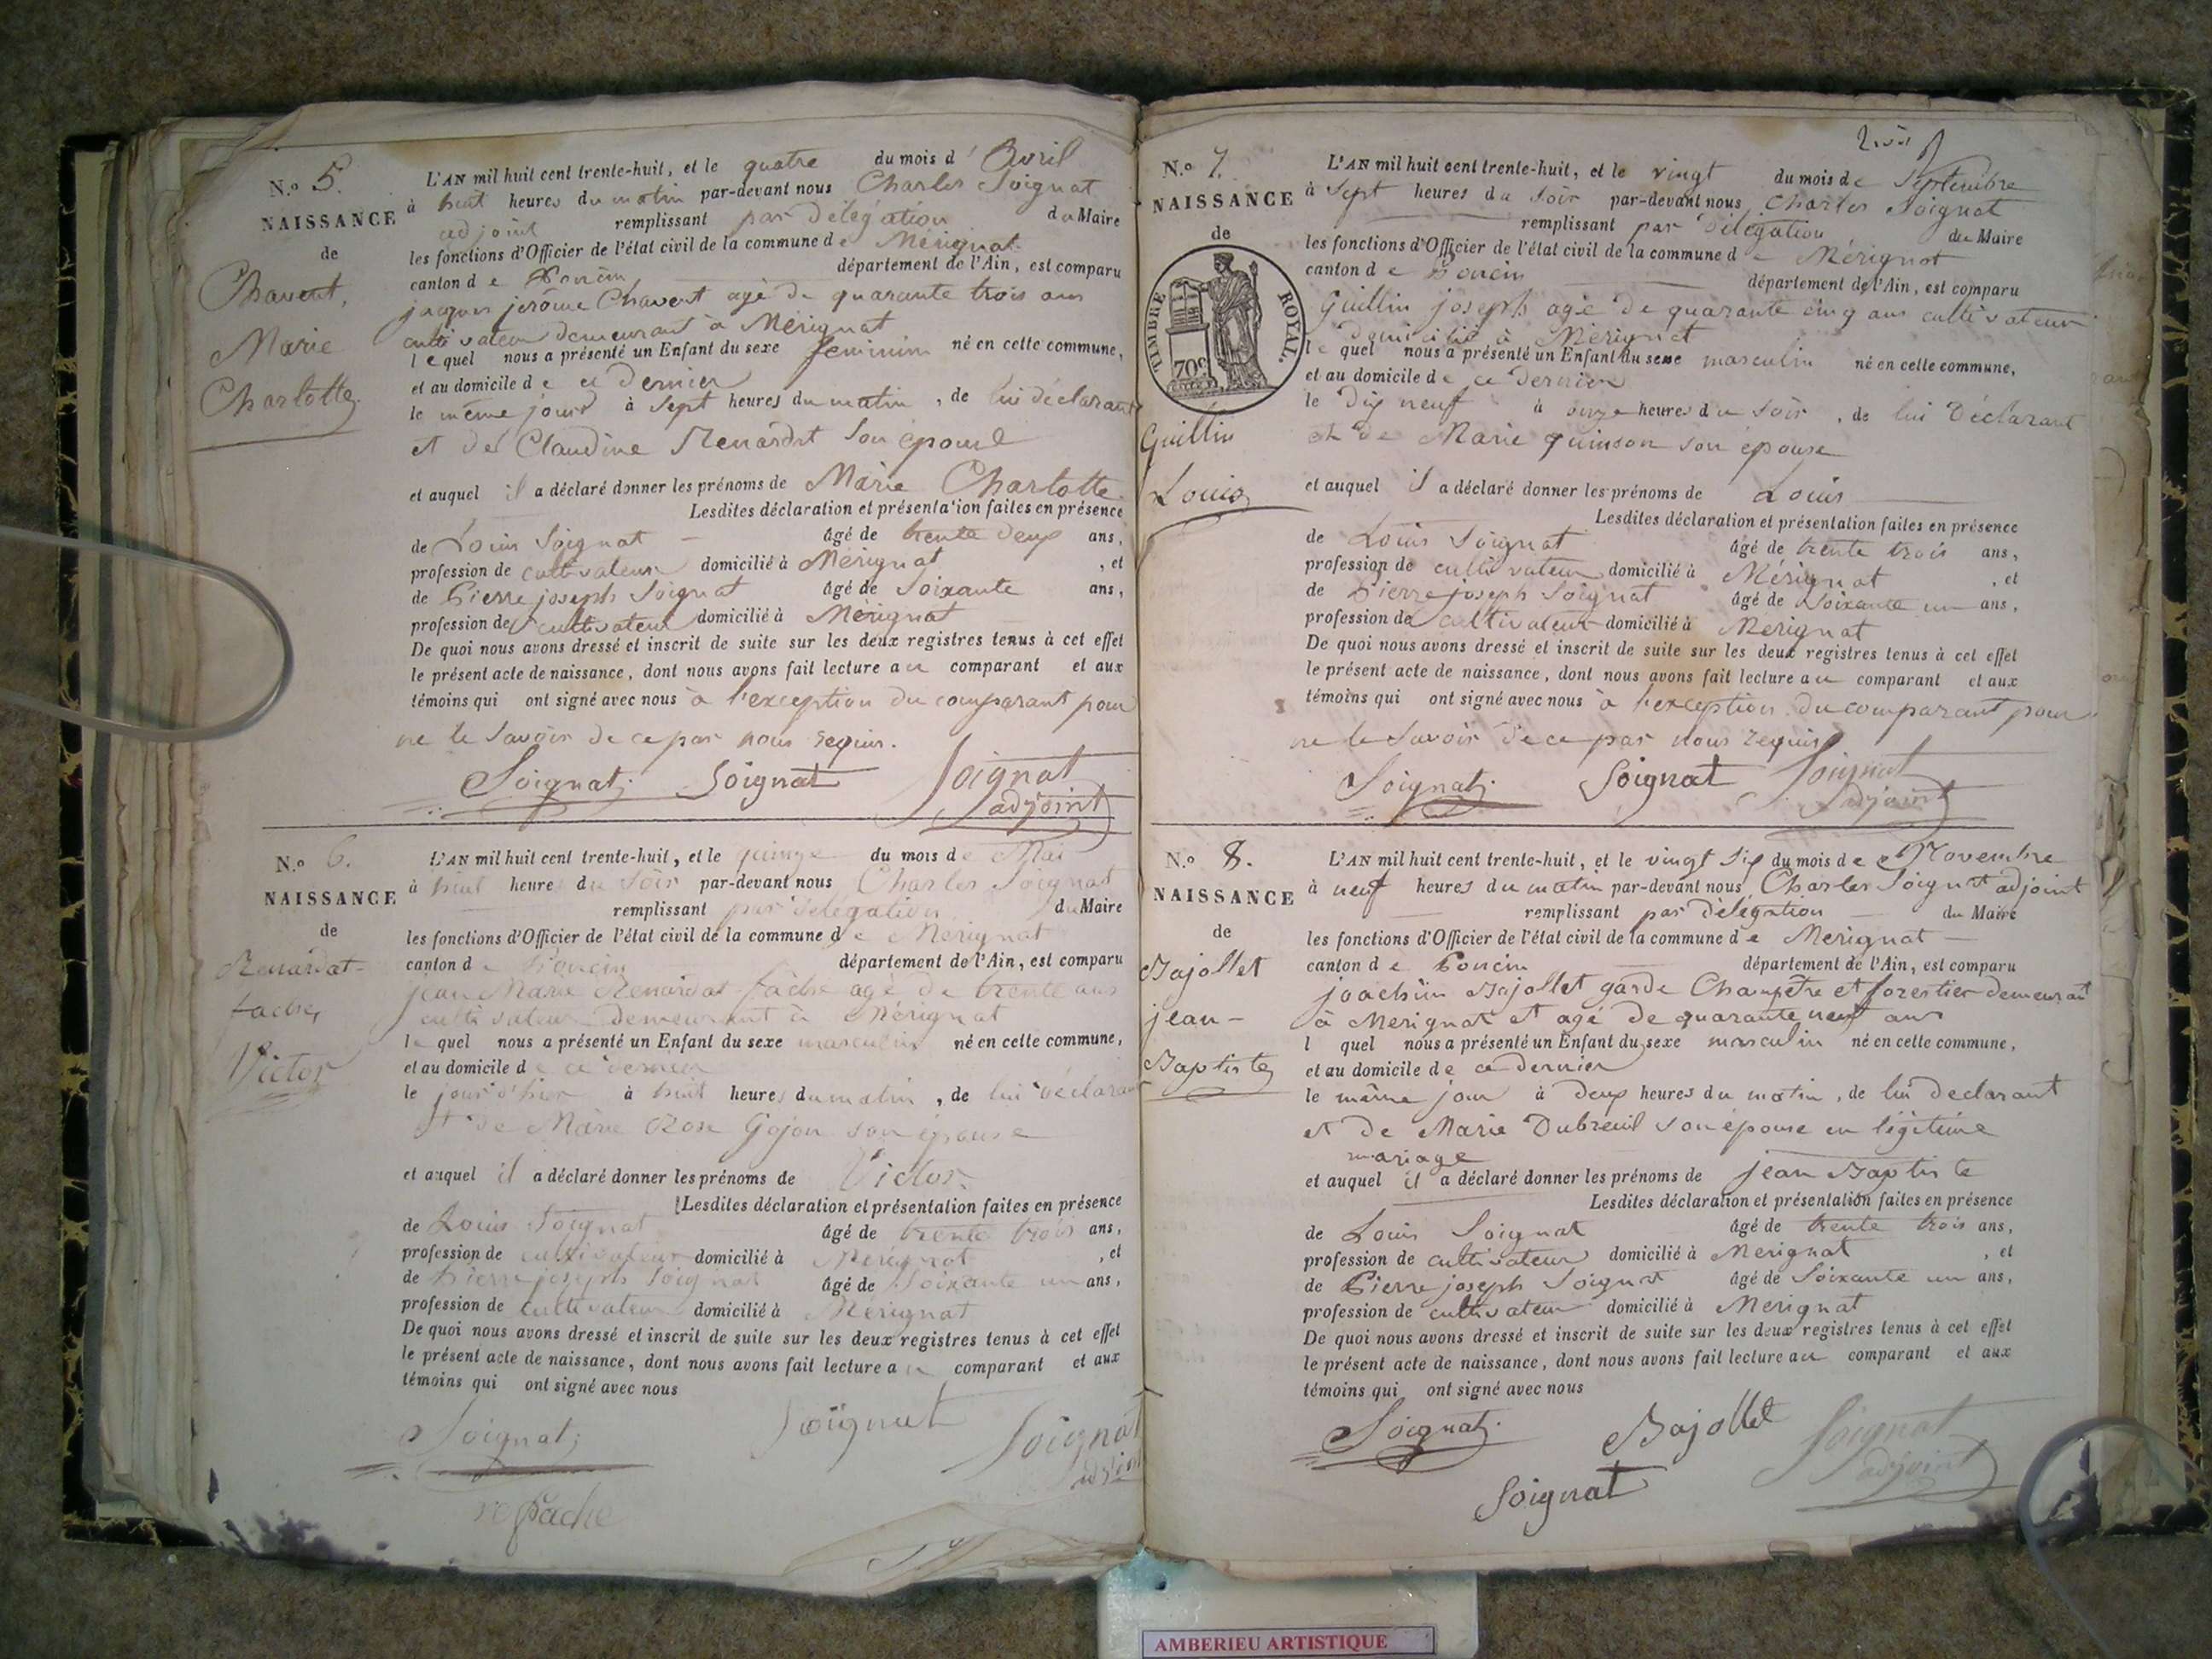 N.o 5.
NAISSANCE
de
Chavent,
Marie
Charlotte.
L'AN mil huit cent trente-huit, et le quatre du mois d' Avril
à huit heures du matin par-devant nous Charles Soignat
adjoint remplissant par délégation du Maire
les fonctions d'Officier de l'état civil de la commune de Mérignat
canton de Poncin département de l'Ain, est comparu
jaques jerome Chavent agé de quarante trois ans
cultivateur demeurant à Mérignat
lequel nous a présenté un Enfant du sexe feminim né en cette commune,
et au domicile de ce dernier
le même jour à sept heures du matin, de lui déclarant
et de Claudine Renardat son épouse
et auquel il a déclaré donner les prénoms de Marie Charlotte
Lesdites déclaration et présentation faites en présence
de Louis Soignat âgé de trente deux ans,
profession de cultivateur domicilié à Mérignat, et
de Pierre joseph Soignat âgé de Soixante ans,
profession de cultivateur domicilié à Mérignat
De quoi nous avons dressé et inscrit de suite sur les deux registres tenus à cet effet
le présent acte de naissance, dont nous avons fait lecture au comparant et aux
témoins qui ont signé avec nous à l'exception du comparant pour
ne le savoir de ce par nous requis.
Soignat Soignat Soignat
adjoint
N.o 6.
NAISSANCE
de
Renardat-
fache,
Victor
L'AN mil huit cent trente-huit, et le quinze du mois de Mai
à huit heures du soir par-devant nous Charles Soignat
remplissant par délégation du Maire
les fonctions d'Officier de l'état civil de la commune de Mérignat
canton de Poncin département de l'Ain, est comparu
jean Marie Renardat fache agé de trente ans
cultivateur demeurant à Mérignat
lequel nous a présenté un Enfant du sexe masculin né en cette commune,
et au domicile de ce dernier
le jour d'hier à huit heures du matin, de lui déclarant
et de Marie Rose Gojon son épouse
et auquel il a déclaré donner les prénoms de Victor.
Lesdites déclaration et présentation faites en présence
de Louis Soignat âgé de trente trois ans,
profession de cultivateur domicilié à Mérignat, et
de Pierre joseph Soignat âgé de Soixante un ans,
profession de cultivateur domicilié à Mérignat
De quoi nous avons dressé et inscrit de suite sur les deux registres tenus à cet effet
le présent acte de naissance, dont nous avons fait lecture au comparant et aux
témoins qui ont signé avec nous
Soignat Soignat Soignat
adjoint
fache
N.o 7.
NAISSANCE
de
TIMBRE ROYAL.
70c
Guillin
Louis
L'AN mil huit cent trente-huit, et le vingt du mois de Septembre
à sept heures du soir par-devant nous Charles Soignat
remplissant par délégation du Maire
les fonctions d'Officier de l'état civil de la commune de Mérignat
canton de Poncin département de l'Ain, est comparu
Guillin joseph agé de quarante cinq ans cultivateur
domicilié à Mérignat
lequel nous a présenté un Enfant du sexe masculin né en cette commune,
et au domicile de ce dernier
le dix neuf à onze heures du soir, de lui Déclarant
et de Marie quinson son épouse
et auquel il a déclaré donner les prénoms de Louis
Lesdites déclaration et présentation faites en présence
de Louis Soignat âgé de trente trois ans,
profession de cultivateur domicilié à Mérignat, et
de Pierre joseph Soignat âgé de Soixante un ans,
profession de cultivateur domicilié à Mérignat
De quoi nous avons dressé et inscrit de suite sur les deux registres tenus à cet effet
le présent acte de naissance, dont nous avons fait lecture au comparant et aux
témoins qui ont signé avec nous à l'exception du comparant pour
ne le savoir de ce par nous requis
Soignat Soignat Soignat
adjoint
N.o 8.
NAISSANCE
de
Bajollet
jean-
Baptiste
L'AN mil huit cent trente-huit, et le vingt six du mois de Novembre
à neuf heures du matin par-devant nous Charles Soignat adjoint
remplissant par délégation du Maire
les fonctions d'Officier de l'état civil de la commune de Merignat
canton de Poncin département de l'Ain, est comparu
joachim Bajollet garde Champêtre et forestier demeurant
à Merignat et agé de quarante neuf ans
l quel nous a présenté un Enfant du sexe masculin né en cette commune,
et au domicile de ce dernier
le même jour à deux heures du matin, de lui declarant
et de Marie Dubreuil son épouse en légitime
mariage
et auquel il a déclaré donner les prénoms de jean Baptiste
Lesdites déclaration et présentation faites en présence
de Louis Soignat âgé de trente trois ans,
profession de cultivateur domicilié à Merignat, et
de Pierre joseph Soignat âgé de Soixante un ans,
profession de cultivateur domicilié à Merignat
De quoi nous avons dressé et inscrit de suite sur les deux registres tenus à cet effet
le présent acte de naissance, dont nous avons fait lecture au comparant et aux
témoins qui ont signé avec nous
Soignat Bajollet Soignat
adjoint
Soignat
AMBERIEU ARTISTIQUE